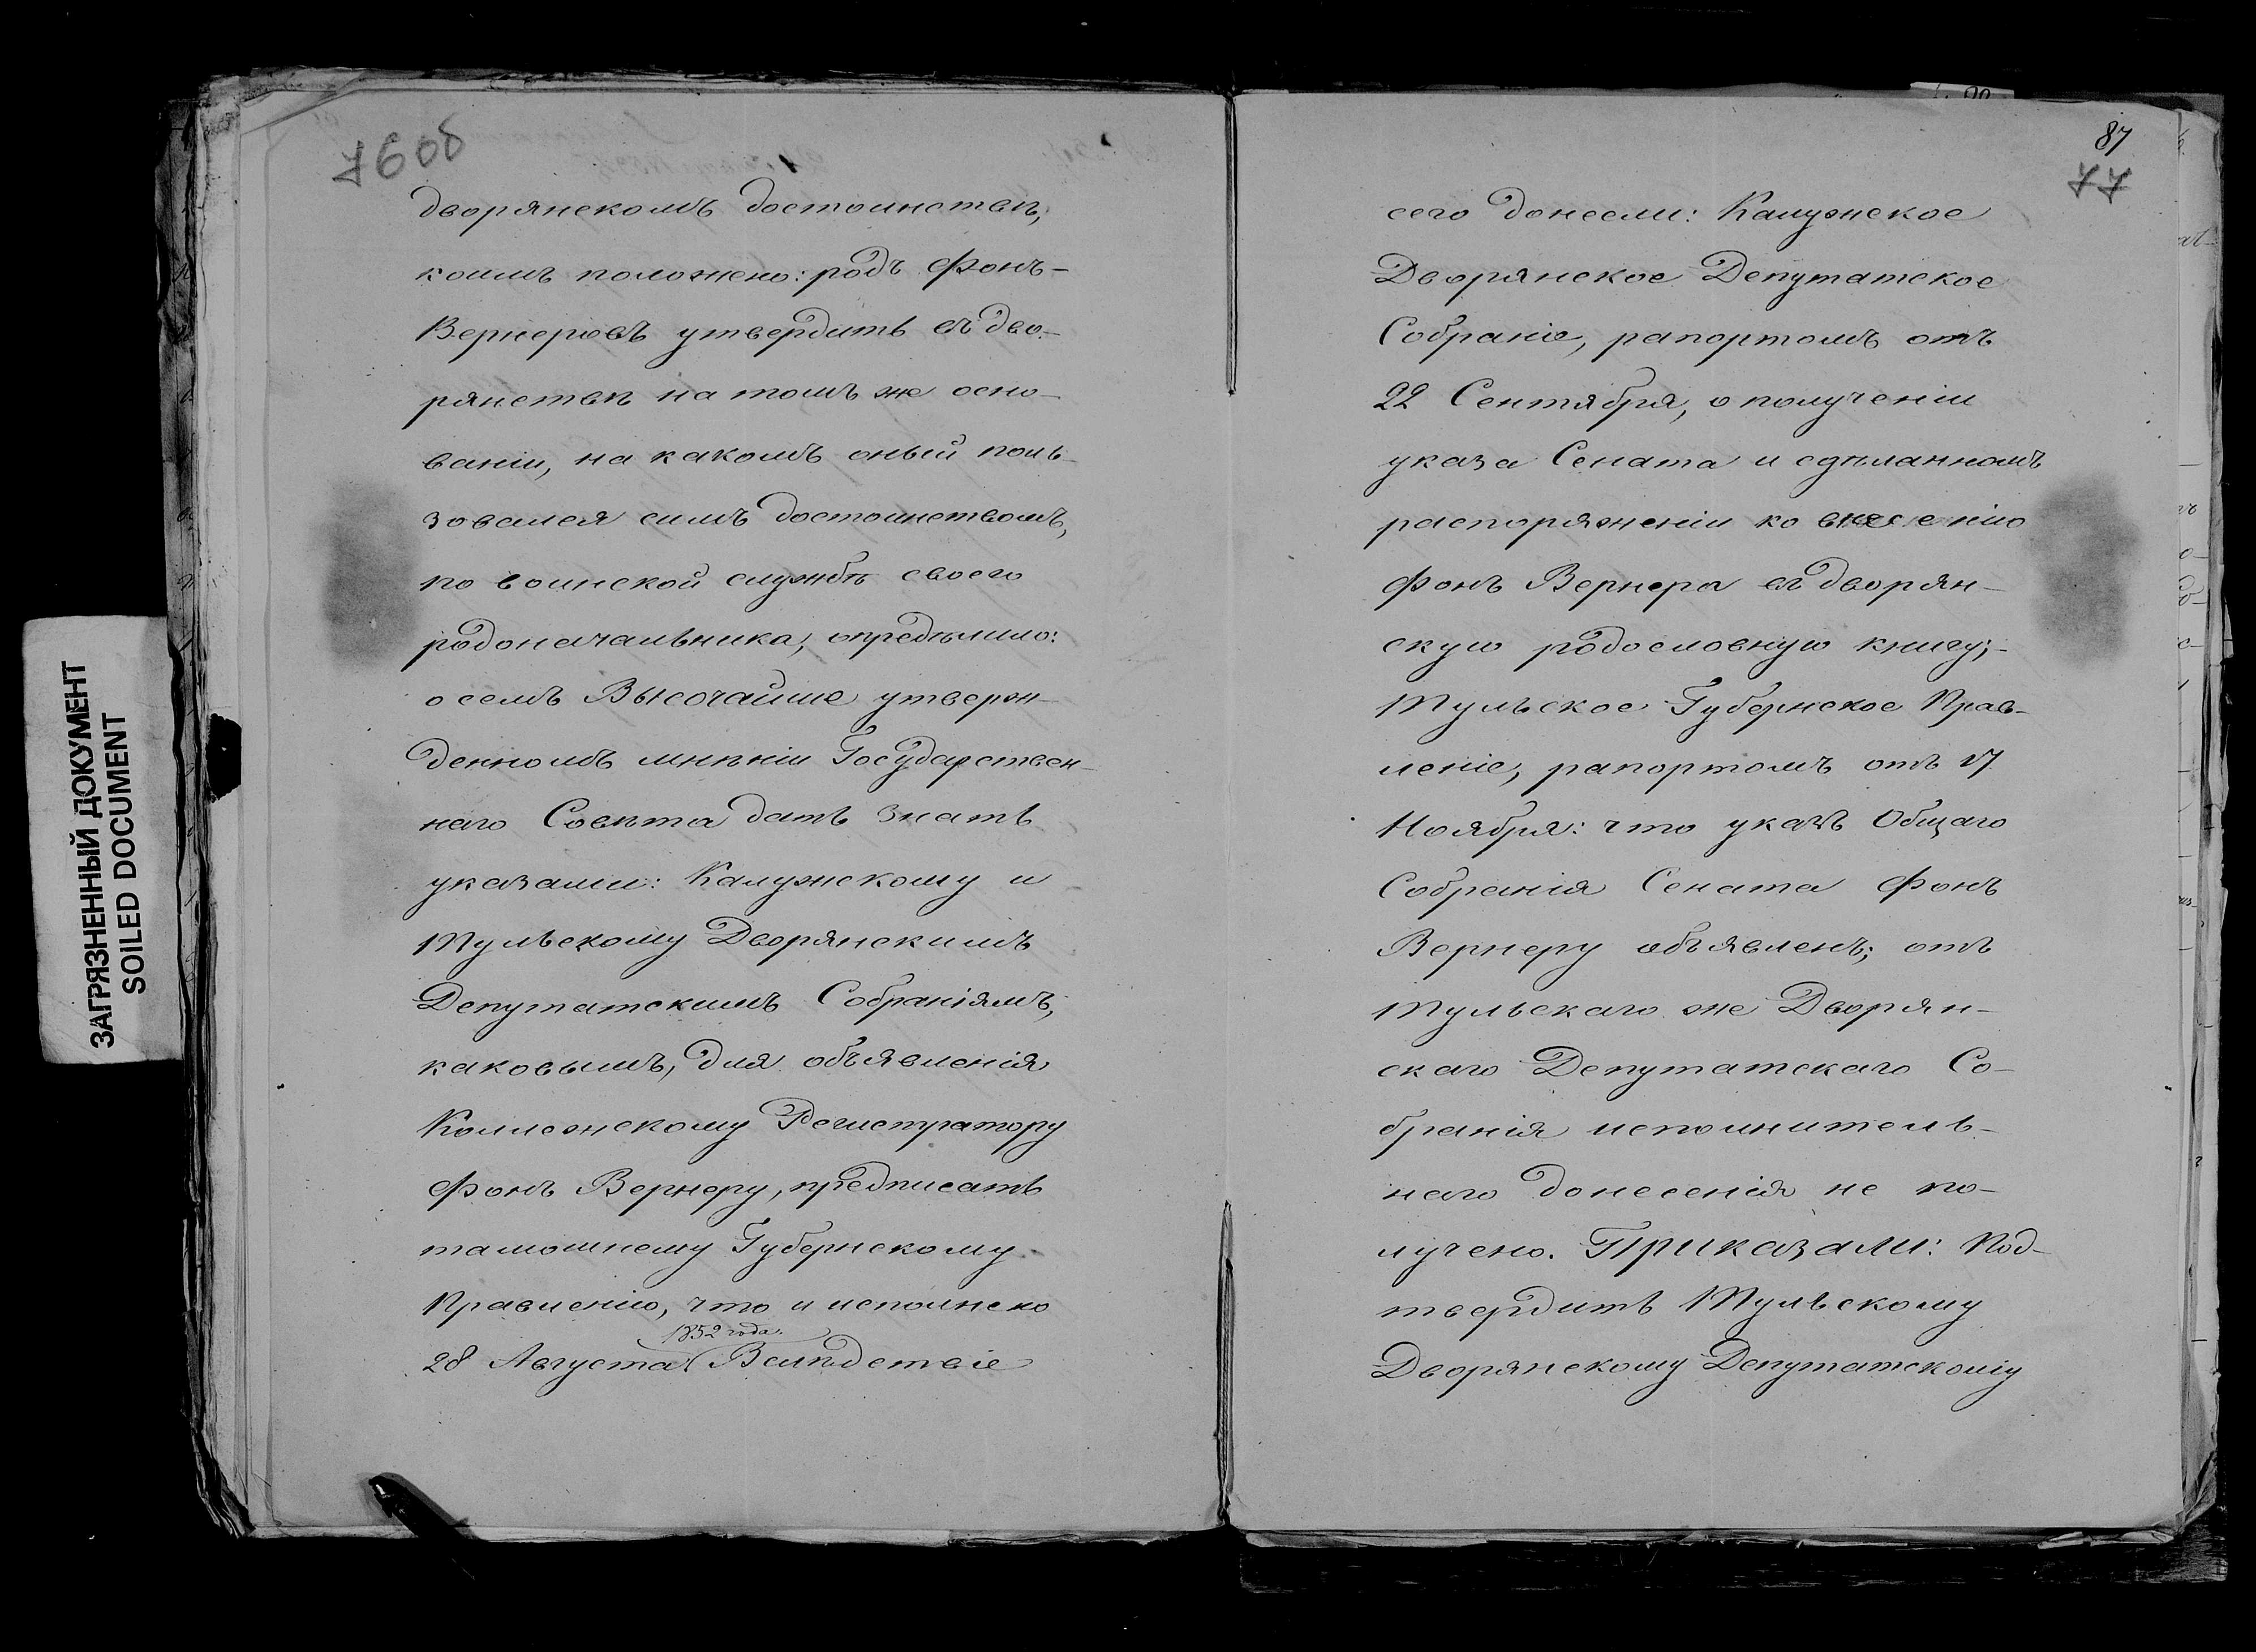 ЗАГРЯЗНЕННЫЙ ДОКУМЕНТ
SOILED DOCUMENT
76об
дворянскомъ достоинствѣ,
коимъ положено: родъ Фонъ-
Вернеровъ утвердить въ дво-
рянствѣ на томъ же осно-
ваніи, на какомъ оный поль-
зовался симъ достоинствомъ,
по воинской службѣ своего
родоначальника, опредѣлило:
о семъ Высочайше утверж-
денномъ мнѣніи Государствен-
наго Совѣта дать знать
указами: Калужскому и
Тульскому Дворянскимъ
Депутатскимъ Собраніямъ,
каковымъ, для объявленія
Коллежскому Регистратору
Фонъ Вернеру, предписать
тамошнему Губернскому
Правленію, что и исполнено
1852 года.
28 Августа Вслѣдствіе
87
77
сего донесли: Калужское
Дворянское Депутатское
Собраніе, рапортомъ отъ
22 Сентября, о полученіи
указа Сената и сдѣланномъ
распоряженіи ко внесенію
Фонъ Вернера въ дворян-
скую родословную книгу;-
Тульское Губернское Прав-
леніе, рапортомъ отъ 17
Ноября: что указъ Общаго
Собранія Сената Фонъ
Вернеру объявленъ; отъ
Тульскаго же Дворян-
скаго Депутатскаго Со-
бранія исполнитель-
наго донесенія не по-
лучено. Приказали: Под-
твердить Тульскому
Дворянскому Депутатскому